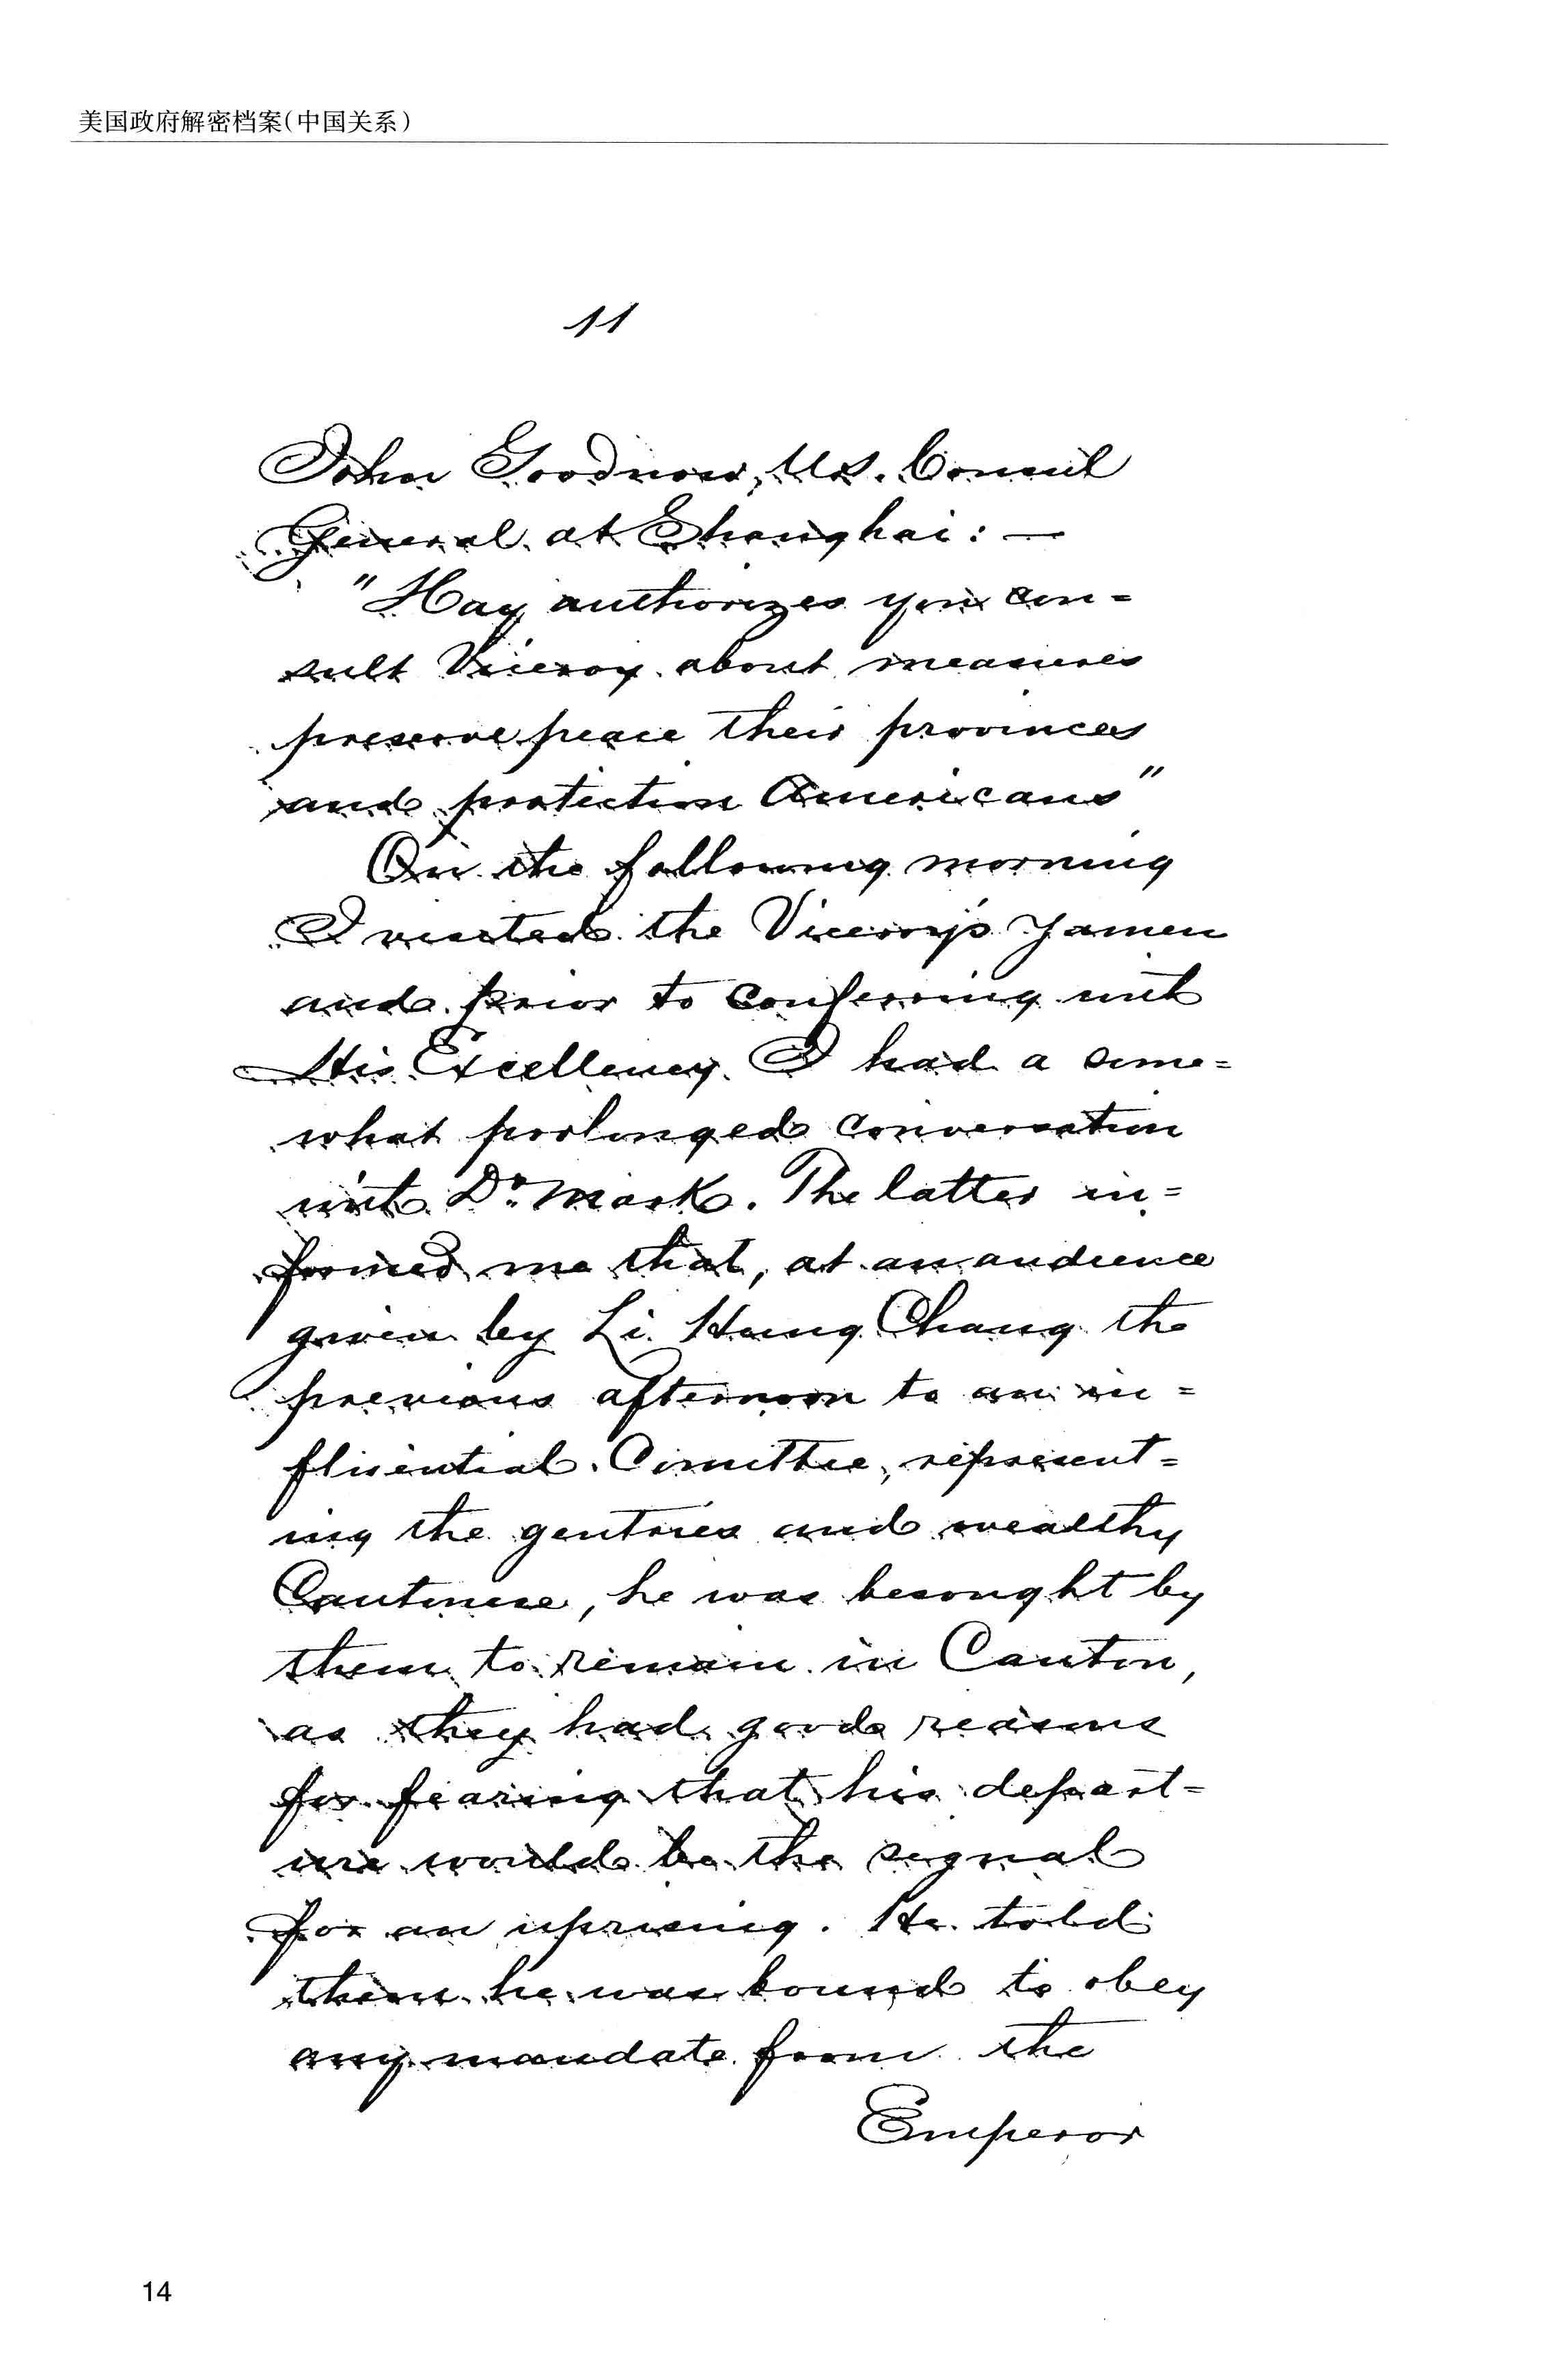 美国政府解密档案(中国关系)
11
John Goodnow, U.S. Consul
General at Shanghai: —
"Hay authorizes you con=
sult Viceroy about measures
preserve peace their provinces
and protection Americans"
On the following morning
I visited the Viceroy's Yamen
and prior to conferring with
His Excellency I had a some=
what prolonged conversation
with Dr. Mark. The latter in=
formed me that, at an audience
given by Li Hung Chang the
previous afternoon to an in=
fluential Comittee, represent=
ing the gentries and wealthy
Cantonese, he was besought by
them to remain in Canton,
as they had good reasons
for fearing that his depart=
ure would be the signal
for an uprising. He told
them he was bound to obey
any mandate from the
Emperor
14